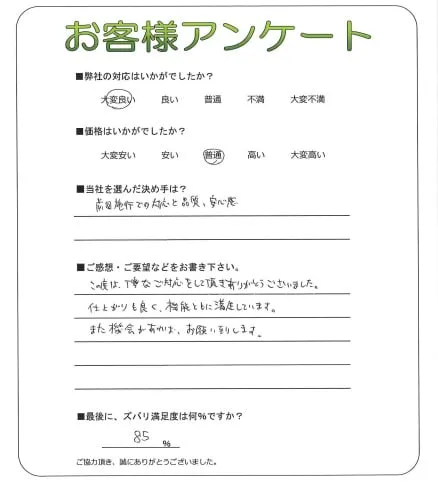 お客様アンケート
■弊社の対応はいかがでしたか？
大変良い 良い 普通 不満 大変不満
■価格はいかがでしたか？
大変安い 安い 普通 高い 大変高い
■当社を選んだ決め手は？
前回施行での対応と品質、安心感
■ご感想・ご要望などをお書き下さい。
この度は、丁寧なご対応をして頂きありがとうございました。
仕上がりも良く、機能ともに満足しています。
また機会があれば、お願い致します。
■最後に、ズバリ満足度は何％ですか？
85 %
ご協力頂き、誠にありがとうございました。